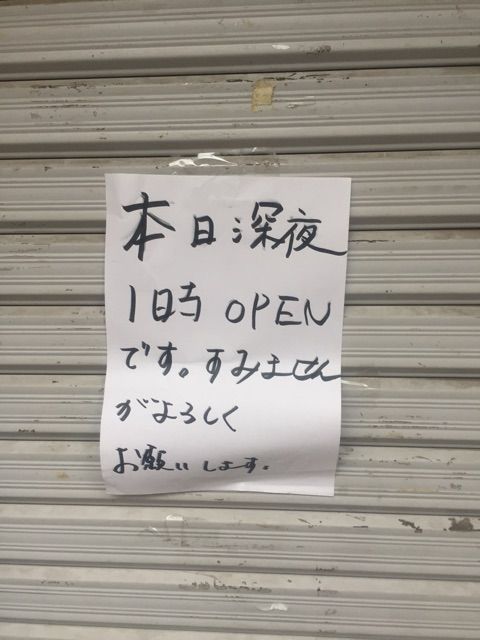 本日深夜
1時 OPEN
です。すみません
がよろしく
お願いします。